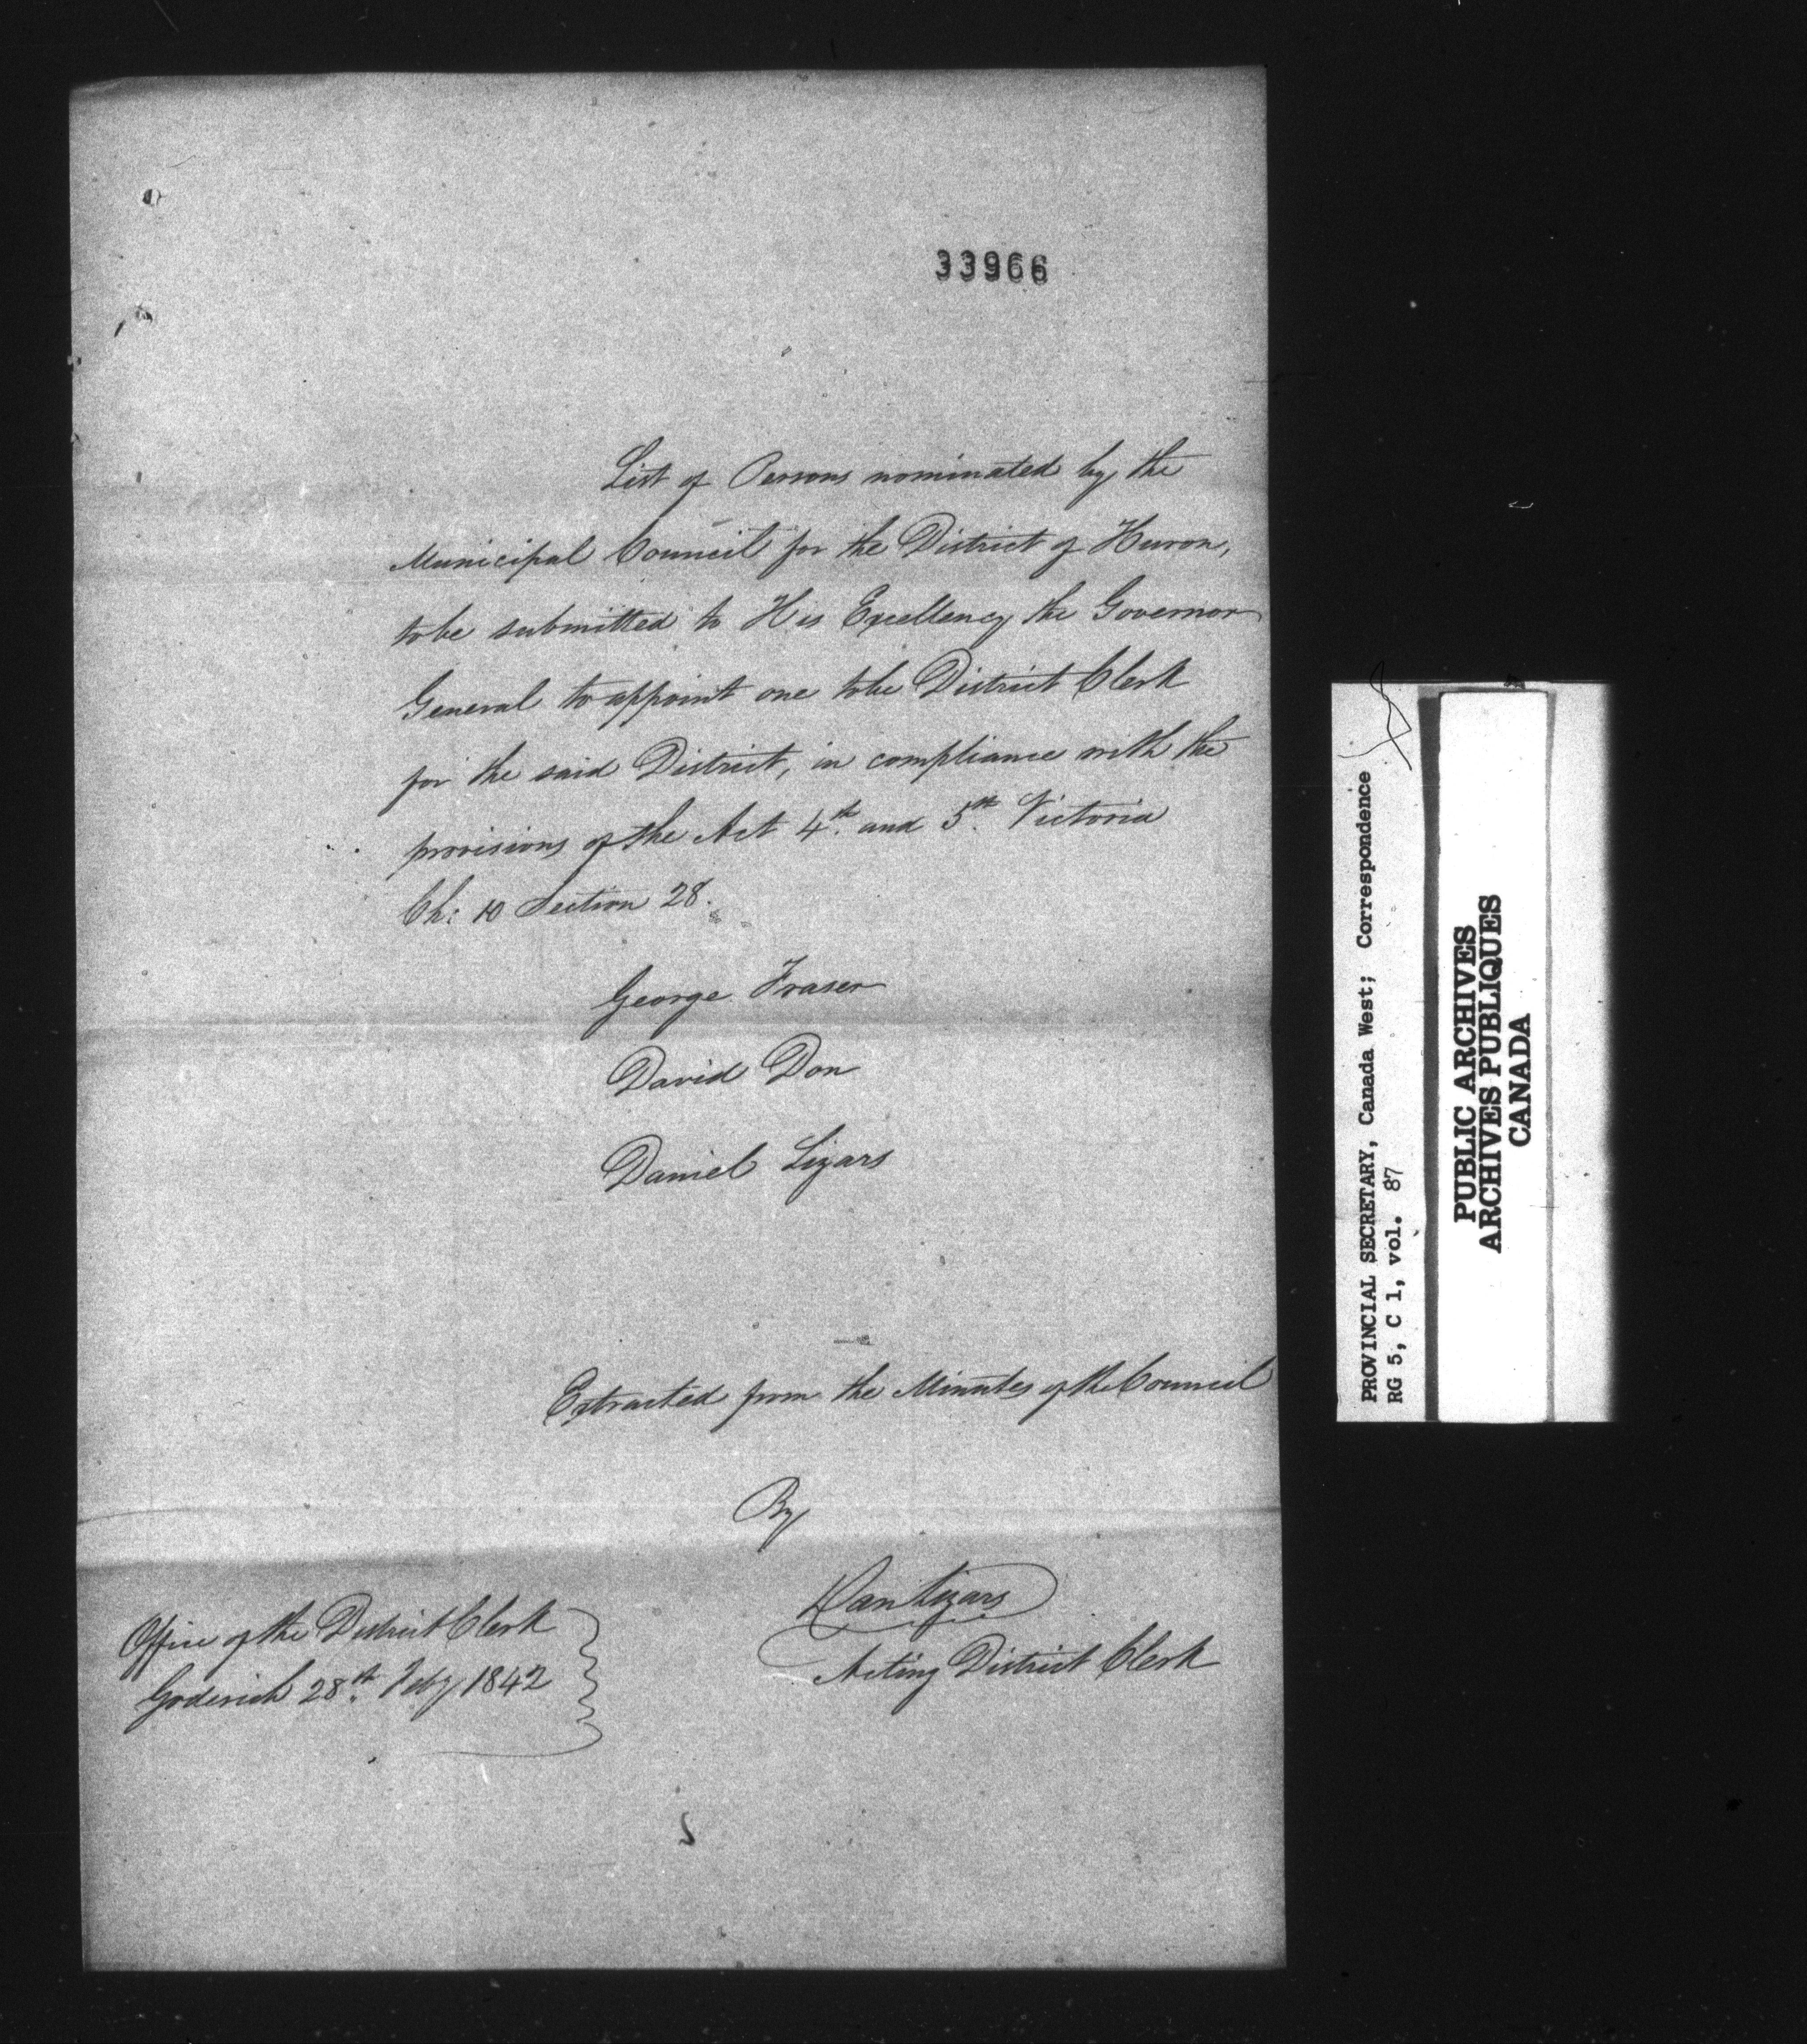 33966
List of Persons nominated by the
Municipal Council for the District of Huron,
to be submitted to His Excellency the Governor
General to appoint one to be District Clerk
for the said District, in compliance with the
provisions of the Act 4th. and 5th. Victoria
Ch: 10 Section 28.
George Fraser
David Don
Daniel Lizars
Extracted from the Minutes of the Council
By
Dan Lizars
Acting District Clerk
Office of the District Clerk
Goderich 28th. Feby 1842
PROVINCIAL SECRETARY, Canada West; Correspondence
RG 5, C 1, vol. 87
PUBLIC ARCHIVES
ARCHIVES PUBLIQUES
CANADA